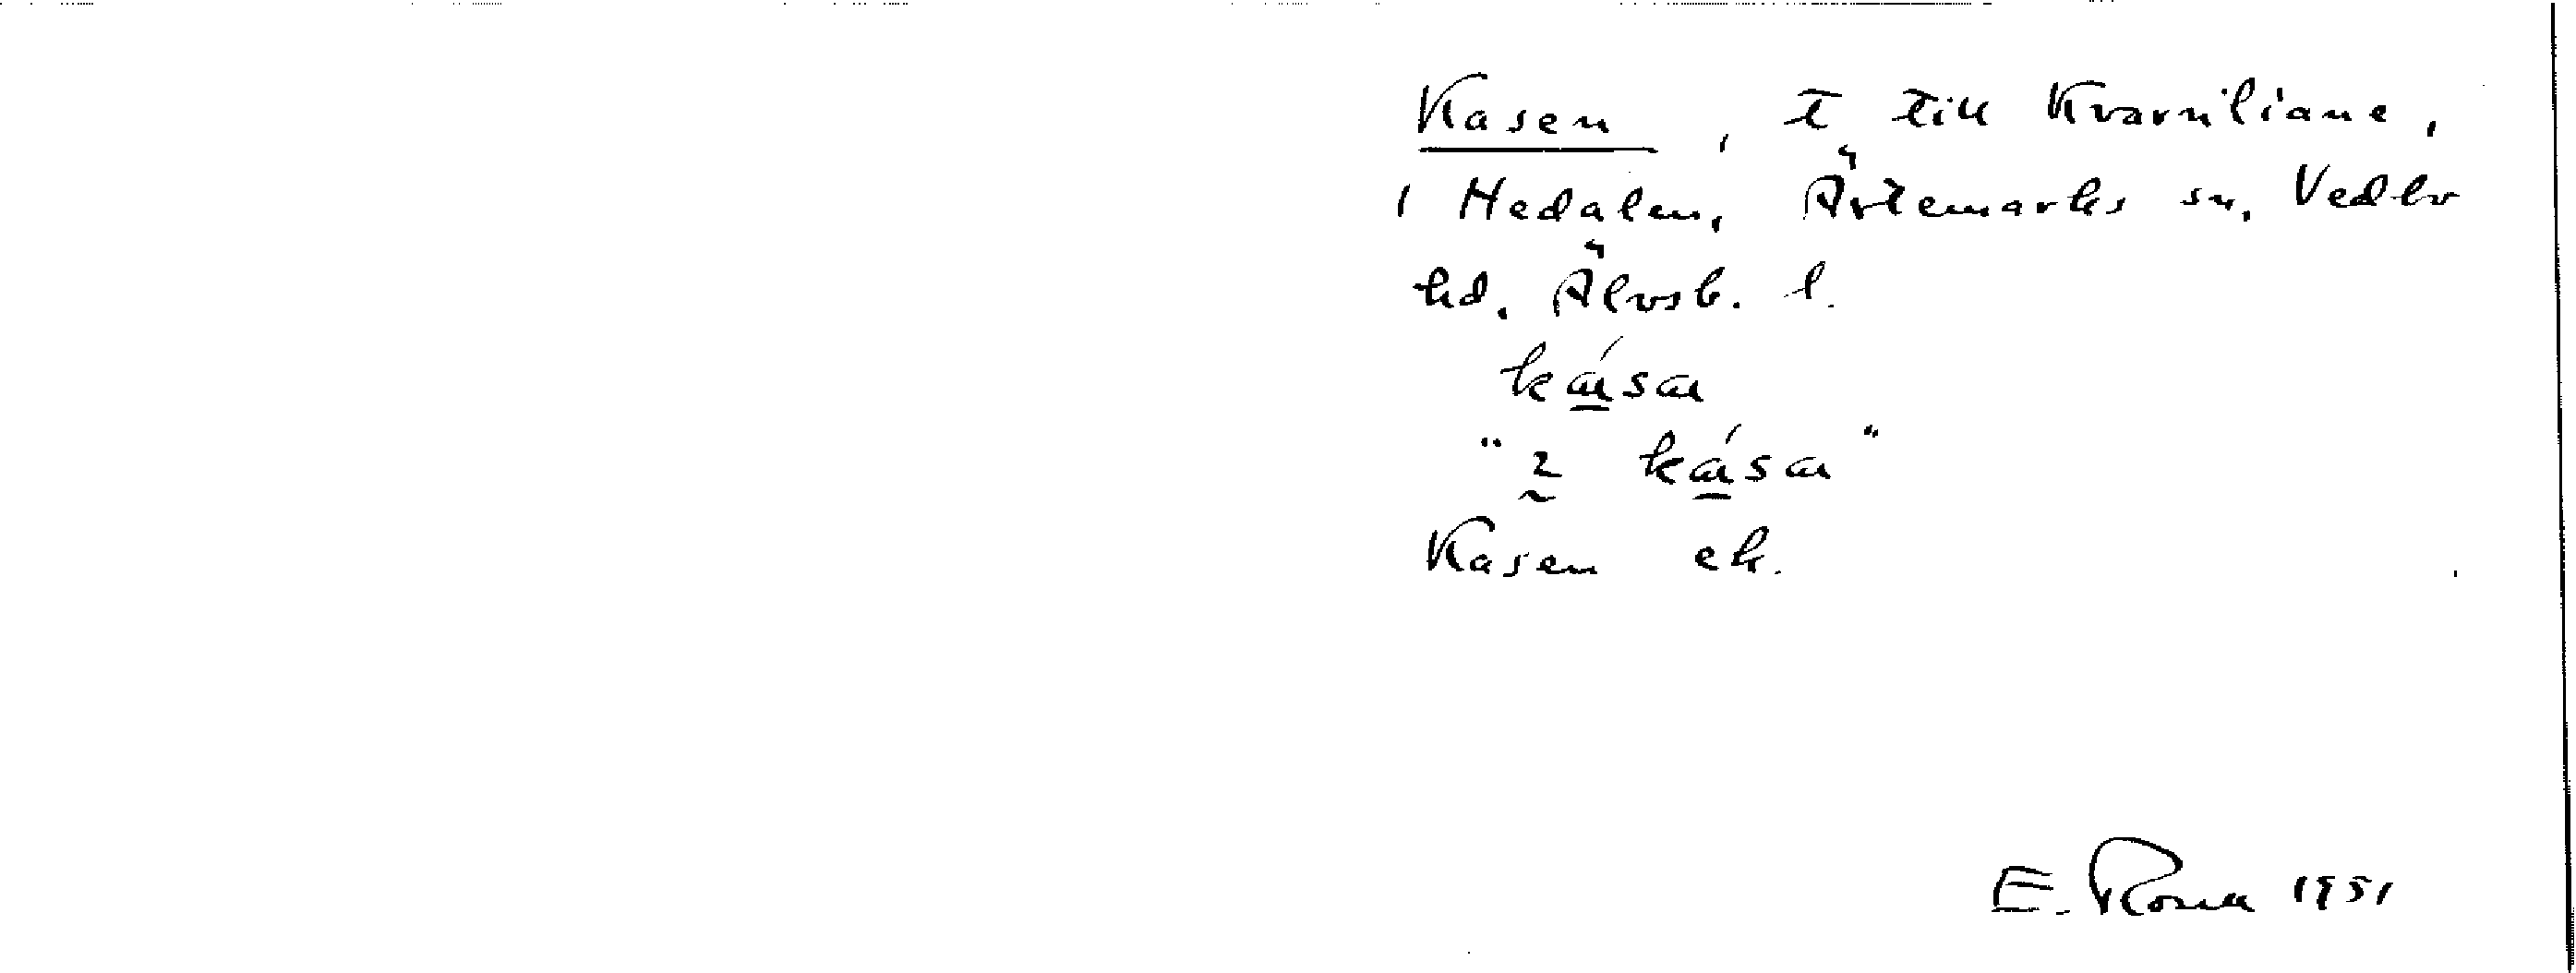 Kasen, t till Kvarnliane,
i Hedalen, Ärtemarks sn, Vedbo
hd. Älvsb. l.
ká̱sa
"2 ká̱sa"
Kasen ek.
E. Rosa 1951